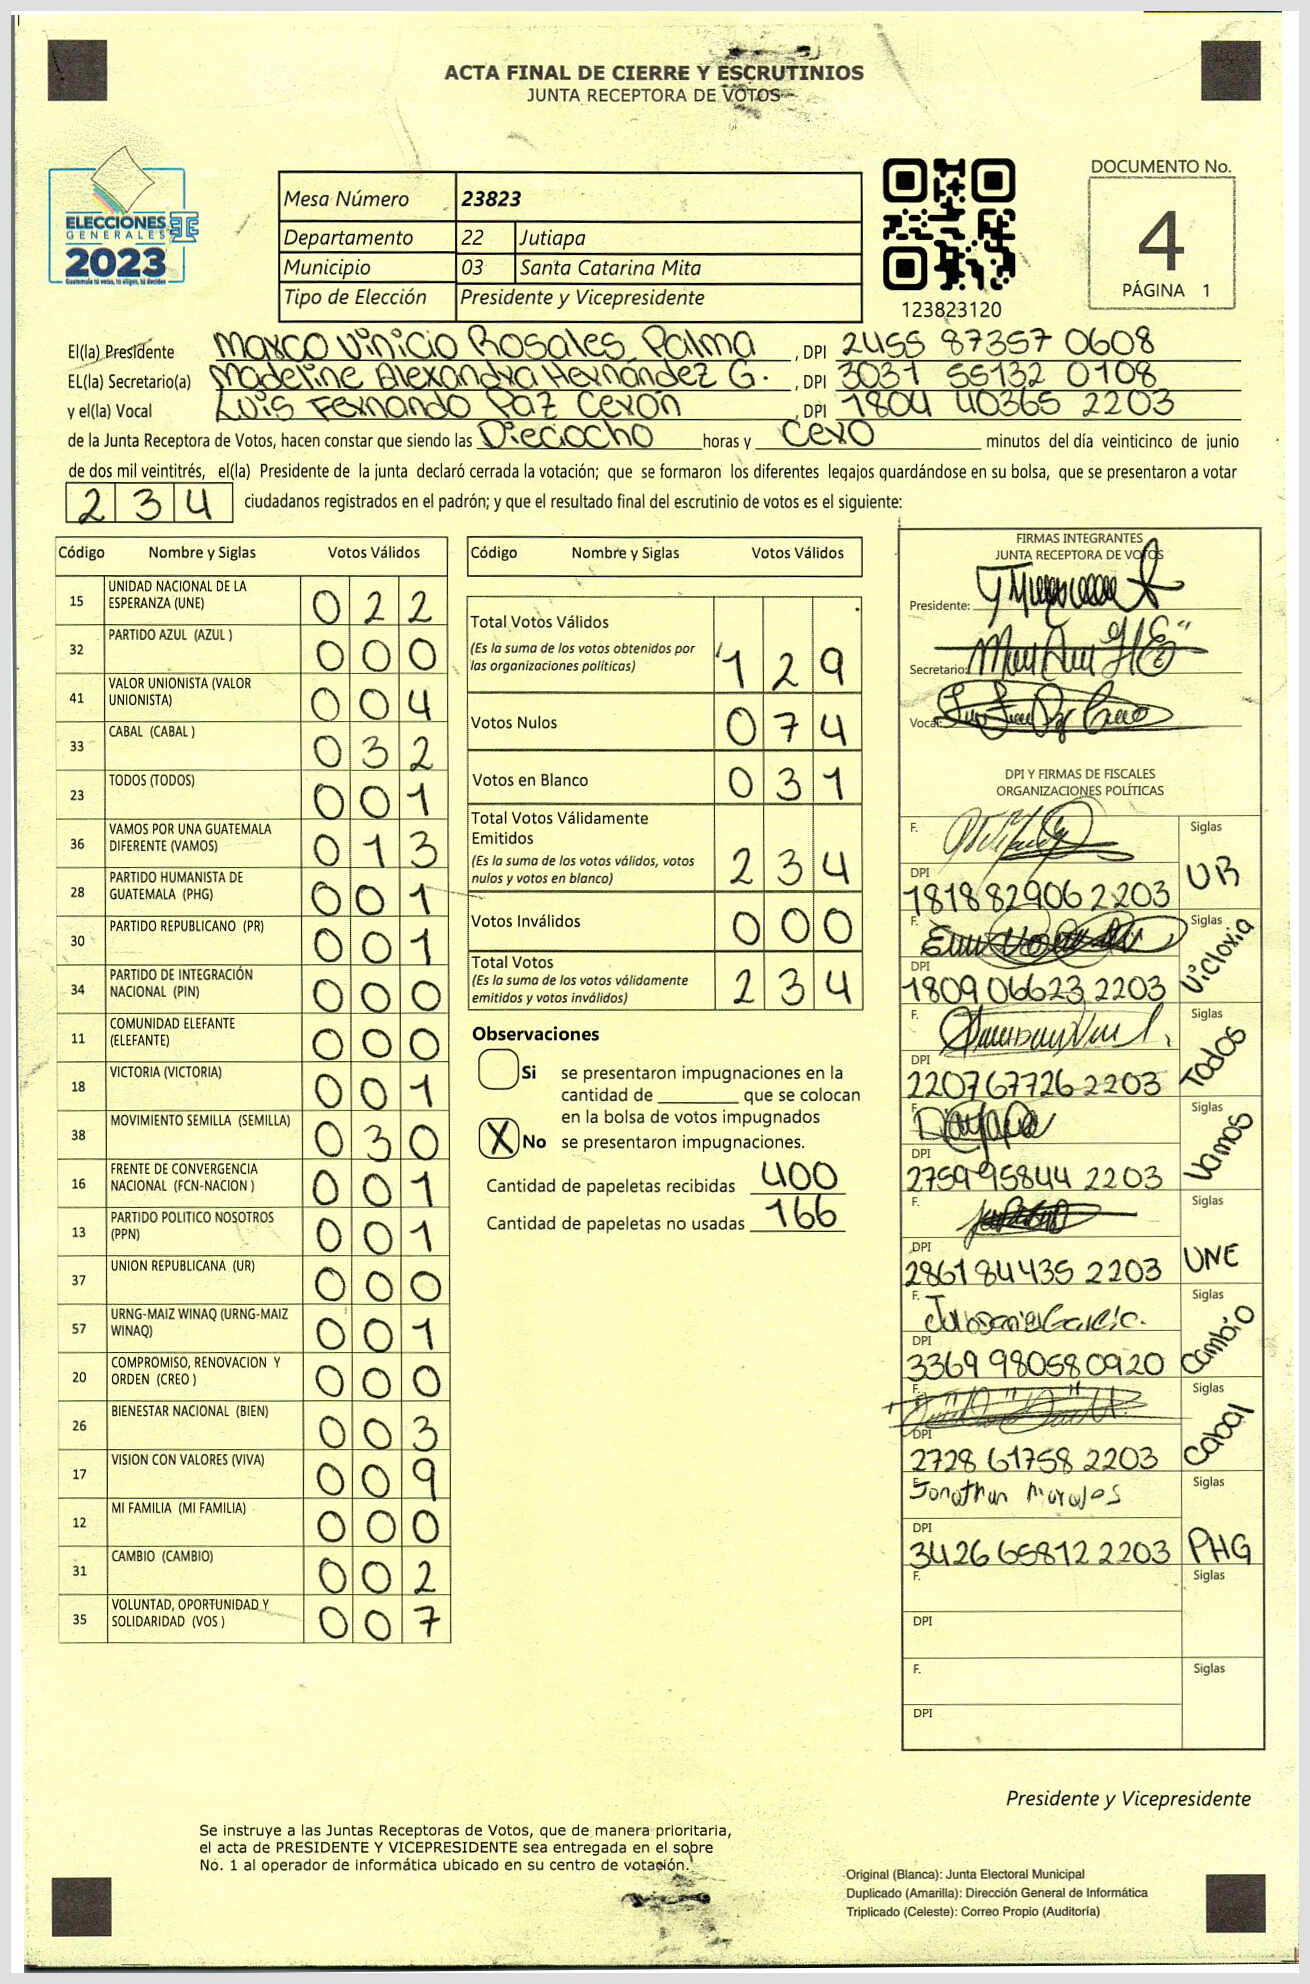 ACTA FINAL DE CIERRE Y ESCRUTINIOS
JUNTA RECEPTORA DE VOTOS
ELECCIONES
GENERALES
2023
Guatemala tú votas, tú eliges, tú decides
Mesa Número 23823
Departamento 22 Jutiapa
Municipio 03 Santa Catarina Mita
Tipo de Elección Presidente y Vicepresidente
123823120
DOCUMENTO No.
4
PÁGINA 1
El(la) Presidente Marco Vinicio Rosales Palma , DPI 2455 87357 0608
EL(la) Secretario(a) Madeline Alexandra Hernández G. , DPI 3031 55132 0108
y el(la) Vocal Luis Fernando Paz Cerón , DPI 1804 40365 2203
de la Junta Receptora de Votos, hacen constar que siendo las Dieciocho horas y Cero minutos del día veinticinco de junio
de dos mil veintitrés, el(la) Presidente de la junta declaró cerrada la votación; que se formaron los diferentes legajos guardándose en su bolsa, que se presentaron a votar
234 ciudadanos registrados en el padrón; y que el resultado final del escrutinio de votos es el siguiente:
Código Nombre y Siglas Votos Válidos
15 UNIDAD NACIONAL DE LA ESPERANZA (UNE) 022
32 PARTIDO AZUL (AZUL ) 000
41 VALOR UNIONISTA (VALOR UNIONISTA) 004
33 CABAL (CABAL ) 032
23 TODOS (TODOS) 001
36 VAMOS POR UNA GUATEMALA DIFERENTE (VAMOS) 013
28 PARTIDO HUMANISTA DE GUATEMALA (PHG) 001
30 PARTIDO REPUBLICANO (PR) 001
34 PARTIDO DE INTEGRACIÓN NACIONAL (PIN) 000
11 COMUNIDAD ELEFANTE (ELEFANTE) 000
18 VICTORIA (VICTORIA) 001
38 MOVIMIENTO SEMILLA (SEMILLA) 030
16 FRENTE DE CONVERGENCIA NACIONAL (FCN-NACION ) 001
13 PARTIDO POLITICO NOSOTROS (PPN) 001
37 UNION REPUBLICANA (UR) 000
57 URNG-MAIZ WINAQ (URNG-MAIZ WINAQ) 001
20 COMPROMISO, RENOVACION Y ORDEN (CREO ) 000
26 BIENESTAR NACIONAL (BIEN) 003
17 VISION CON VALORES (VIVA) 009
12 MI FAMILIA (MI FAMILIA) 000
31 CAMBIO (CAMBIO) 002
35 VOLUNTAD, OPORTUNIDAD Y SOLIDARIDAD (VOS ) 007
Código Nombre y Siglas Votos Válidos
Total Votos Válidos 129
(Es la suma de los votos obtenidos por
las organizaciones políticas)
Votos Nulos 074
Votos en Blanco 031
Total Votos Válidamente
Emitidos 234
(Es la suma de los votos válidos, votos
nulos y votos en blanco)
Votos Inválidos 000
Total Votos 234
(Es la suma de los votos válidamente
emitidos y votos inválidos)
Observaciones
Si se presentaron impugnaciones en la
cantidad de ________ que se colocan
en la bolsa de votos impugnados
X No se presentaron impugnaciones.
Cantidad de papeletas recibidas 400
Cantidad de papeletas no usadas 166
FIRMAS INTEGRANTES
JUNTA RECEPTORA DE VOTOS
Presidente:
Secretario:
Vocal:
DPI Y FIRMAS DE FISCALES
ORGANIZACIONES POLÍTICAS
F. Siglas UR
DPI 1818 82906 2203
F. Siglas Victoria
DPI 1809 06623 2203
F. Siglas Todos
DPI 2207 67726 2203
F. Siglas Vamos
DPI 2759 95844 2203
F. Siglas UNE
DPI 2861 84435 2203
F. Siglas Cambio
DPI 3369 98058 0920
F. Siglas Cabal
DPI 2728 61758 2203
F. Jonathan Morales Siglas PHG
DPI 3426 65812 2203
F. Siglas
DPI
F. Siglas
DPI
Presidente y Vicepresidente
Se instruye a las Juntas Receptoras de Votos, que de manera prioritaria,
el acta de PRESIDENTE Y VICEPRESIDENTE sea entregada en el sobre
No. 1 al operador de informática ubicado en su centro de votación.
Original (Blanca): Junta Electoral Municipal
Duplicado (Amarilla): Dirección General de Informática
Triplicado (Celeste): Correo Propio (Auditoría)